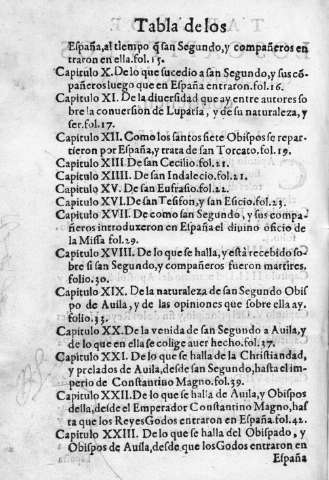 Tabla de los
España, al tiempo q̃ san Segundo, y compañeros en
traron en ella. fol. 15.
Capitulo X. De lo que sucedio a san Segundo, y sus cõ
pañeros luego que en España entraron. fol. 16.
Capitulo XI. De la diuersidad que ay entre autores so
bre la conuersion de Luparia, y de su naturaleza, y
ser. fol. 17.
Capitulo XII. Como los santos siete Obispos se repar-
tieron por España, y trata de san Torcato. fol. 19.
Capitulo XIII De san Cecilio. fol. 21.
Capitulo XIIII. De san Indalecio. fol. 21.
Capitulo XV. De san Eufrasio. fol. 22.
Capitulo XVI. De san Tesifon, y san Esicio. fol. 23.
Capitulo XVII. De como san Segundo, y sus compa-
ñeros introduxeron en España el diuino oficio de
la Missa fol. 29.
Capitulo XVIII. De lo que se halla, y està recebido so-
bre si san Segundo, y compañeros fueron martires.
folio. 30.
Capitulo XIX. De la naturaleza de san Segundo Obis
po de Auila, y de las opiniones que sobre ella ay.
folio. 33.
Capitulo XX. De la venida de san Segundo a Auila, y
de lo que en ella se colige auer hecho. fol. 37.
Capitulo XXI. De lo que se halla de la Christiandad,
y prelados de Auila, desde san Segundo, hasta el im-
perio de Constantino Magno. fol. 39.
Capitulo XXII. De lo q̃ se halla de Auila, y Obispos
della, desde el Emperador Constantino Magno, has
ta que los Reyes Godos entraron en España. fol. 42.
Capitulo XXIII. De lo que se halla del Obispado, y
Obispos de Auila, desde que los Godos entraron en
España